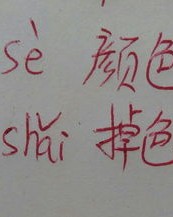 sè 颜色
shǎi 掉色